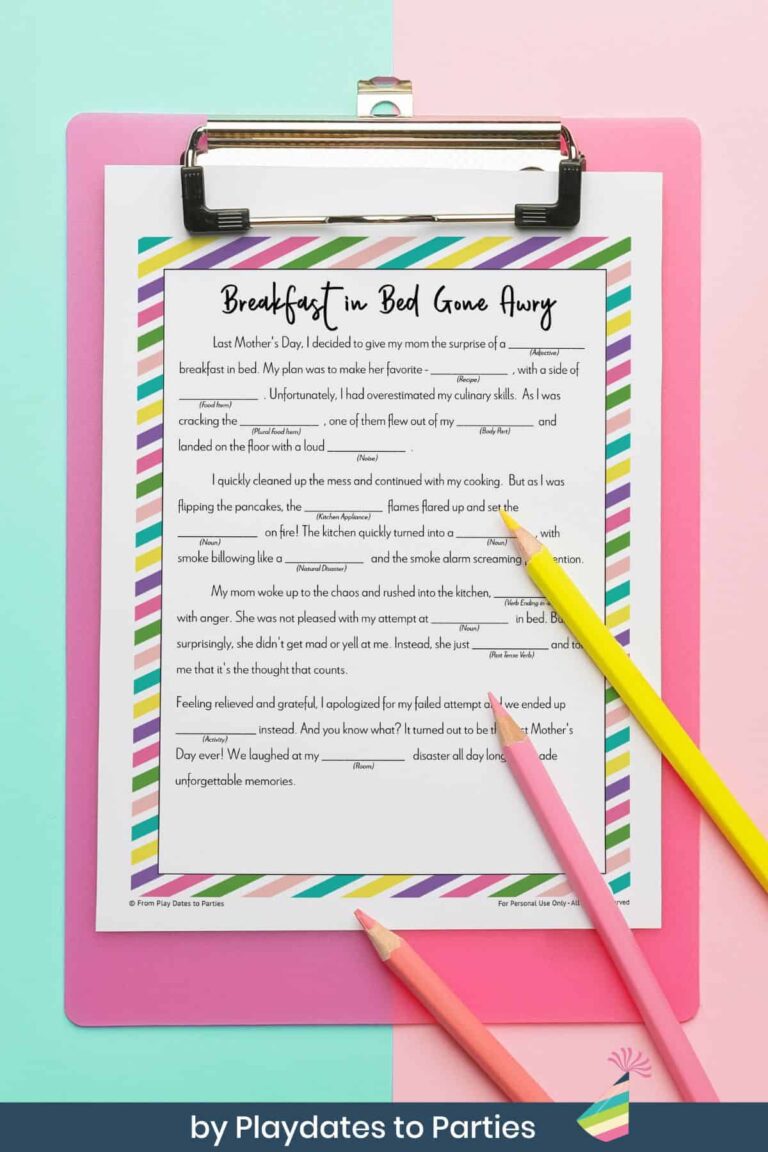 Breakfast in Bed Gone Awry
Last Mother's Day, I decided to give my mom the surprise of a ____________
(Adjective)
breakfast in bed. My plan was to make her favorite - ____________ , with a side of
(Recipe)
____________ . Unfortunately, I had overestimated my culinary skills. As I was
(Food Item)
cracking the ____________ , one of them flew out of my ____________ and
(Plural Food Item) (Body Part)
landed on the floor with a loud ____________ .
(Noise)
I quickly cleaned up the mess and continued with my cooking. But as I was
flipping the pancakes, the ____________ flames flared up and set the
(Kitchen Appliance)
____________ on fire! The kitchen quickly turned into a ____________ , with
(Noun) (Noun)
smoke billowing like a ____________ and the smoke alarm screaming
(Natural Disaster)
My mom woke up to the chaos and rushed into the kitchen, ____________
(Verb Ending in
with anger. She was not pleased with my attempt at ____________ in bed.
(Noun)
surprisingly, she didn't get mad or yell at me. Instead, she just ____________ and
(Past Tense Verb)
me that it's the thought that counts.
Feeling relieved and grateful, I apologized for my failed attempt we ended up
____________ instead. And you know what? It turned out to be Mother's
(Activity)
Day ever! We laughed at my ____________ disaster all day
(Room)
unforgettable memories.
© From Play Dates to Parties For Personal Use Only •
by Playdates to Parties